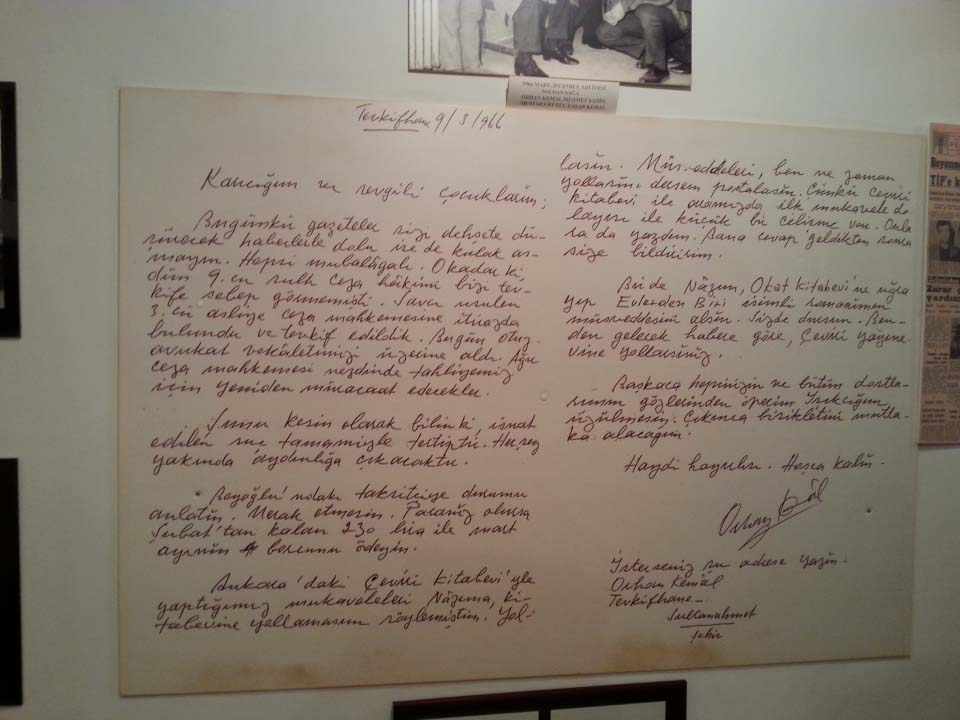 1966 MART, İSTANBUL ADLİYESİ
SOLDAN SAĞA
ORHAN KEMAL, MEHMET
MUSTAFA KUTLU, YAŞAR KEMAL
Tevkifhane 9/3/966
Karıcığım ve sevgili çocuklarım;
Bugünkü gazeteler sizi dehşete dü-
şürecek haberlerle dolu ise de kulak as-
mayın. Hepsi mubalâgalı. Okadar ki
dün 9. cu sulh ceza hâkimi bizi tev-
kife sebep görmemişti. Savcı usulen
3. cü asliye ceza mahkemesine itirazda
bulundu ve tevkif edildik. Bugün otuz
avukat vekâletimizi üzerine aldı. Ağır
ceza mahkemesi nezdinde tahliyemiz
için yeniden müracaat edecekler.
Şunu kesin olarak bilin ki, isnat
edilen suç tamamiyle tertiptir. Herşey
yakında aydınlığa çıkacaktır.
Beyoğlu'ndaki taksitçiye durumu
anlatın. Merak etmesin. Paranız olursa
Şubat'tan kalan 230 lira ile mart
ayının borcunu ödeyin.
Ankara'daki Çeviri Kitabevi'yle
yaptığımız mukaveleleri Nâzıma, ki-
tabevine yollamasını söylemiştim. Yol-
lasın. Müsveddeleri, ben ne zaman
yollasın dersem postalasın. Çünkü Çeviri
kitabevi ile aramızda ilk mukavele do-
layısı ile küçük bir çelişme var. Onla-
ra da yazdım. Bana cevap geldikten sonra
size bildiririm.
Bir de Nâzım, Okat Kitabevi'ne uğra
yıp Evlerden Biri isimli romanımın
müsveddesini alsın. Sizde dursun. Ben-
den gelecek habere göre, Çeviri yayıne-
vine yollarsınız.
Başkaca hepinizin ve bütün dostla-
rımın gözlerinden öperim. Işıkcığım
üzülmesin. Çıkınca bisikletini mutla-
ka alacağım.
Haydi hayırlısı. Hoşca kalın.
Orhan
İsterseniz şu adrese yazın.
Orhan Kemâl
Tevkifhane-
Sultanahmet
Şehir
TİP'e
Zarar
yardım